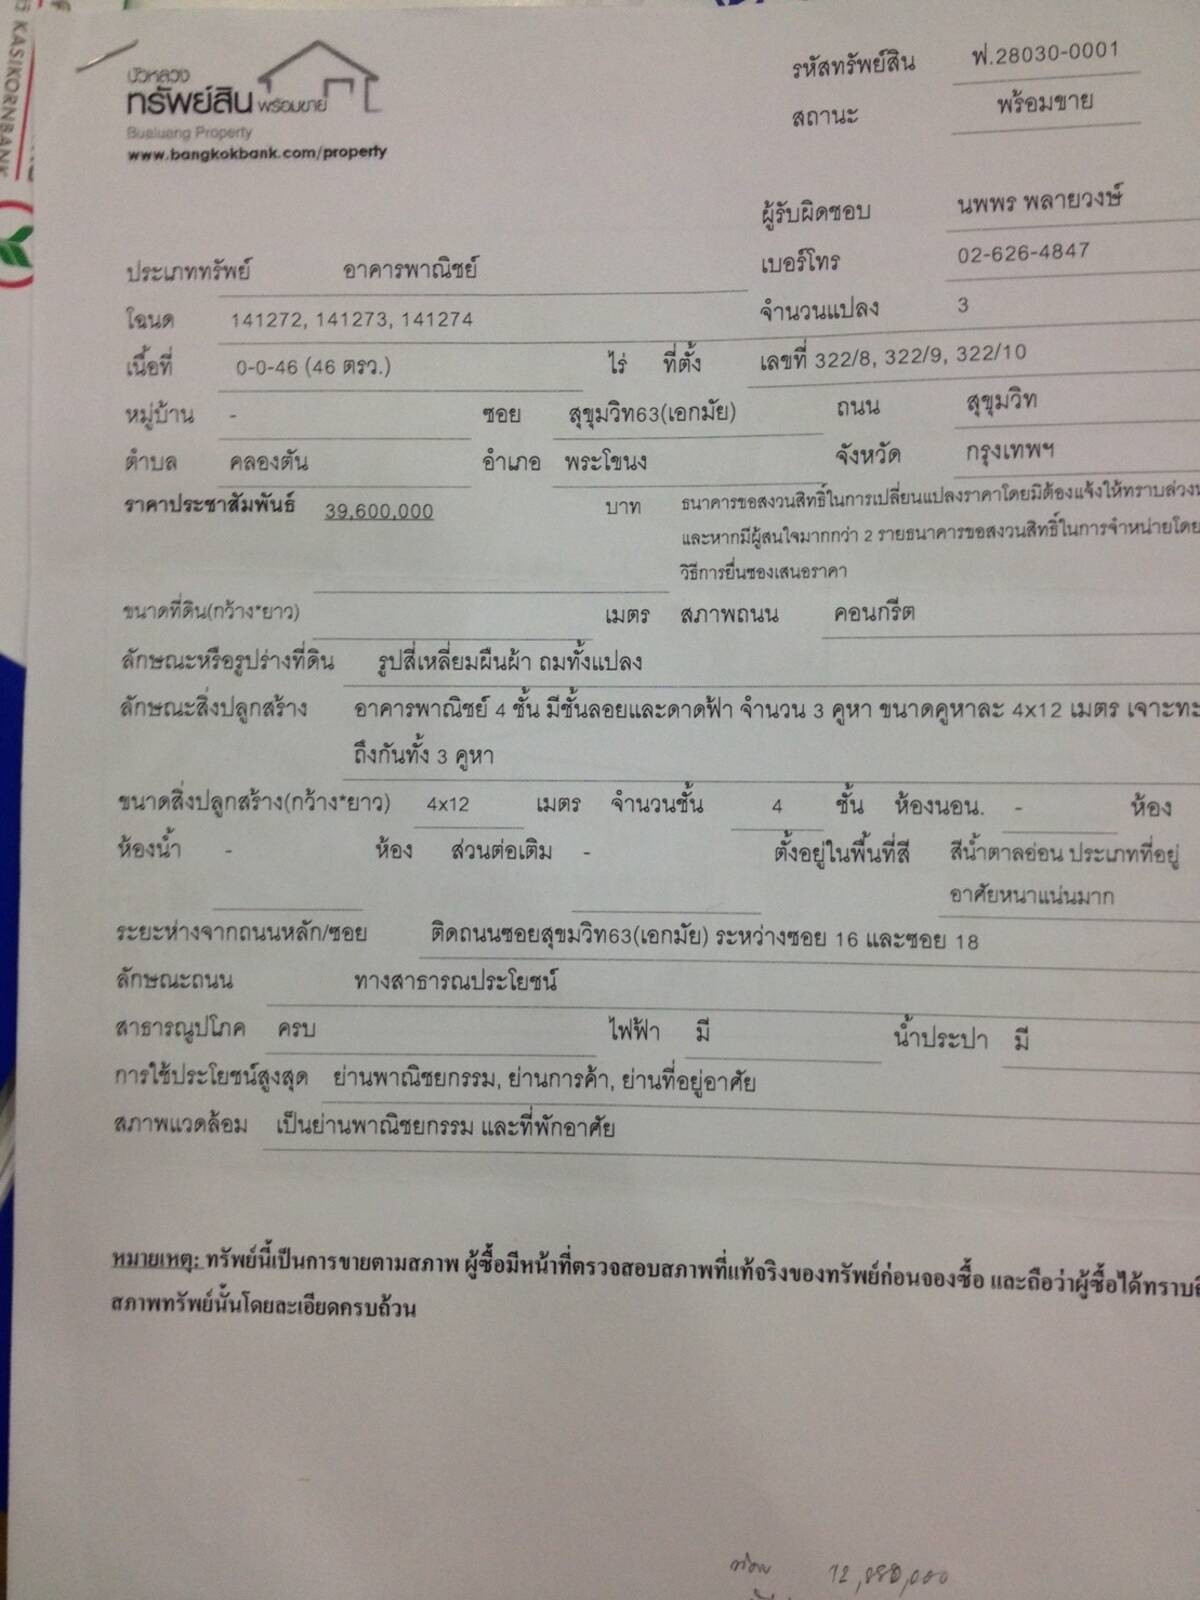 KASIKORNBANK
บัวหลวง
ทรัพย์สิน พร้อมขาย
Bualuang Property
www.bangkokbank.com/property
รหัสทรัพย์สิน ฟ.28030-0001
สถานะ พร้อมขาย
ผู้รับผิดชอบ นพพร พลายวงษ์
ประเภททรัพย์ อาคารพาณิชย์ เบอร์โทร 02-626-4847
โฉนด 141272, 141273, 141274 จำนวนแปลง 3
เนื้อที่ 0-0-46 (46 ตรว.) ไร่ ที่ตั้ง เลขที่ 322/8, 322/9, 322/10
หมู่บ้าน - ซอย สุขุมวิท63(เอกมัย) ถนน สุขุมวิท
ตำบล คลองตัน อำเภอ พระโขนง จังหวัด กรุงเทพฯ
ราคาประชาสัมพันธ์ 39,600,000 บาท ธนาคารขอสงวนสิทธิ์ในการเปลี่ยนแปลงราคาโดยมิต้องแจ้งให้ทราบล่วง
และหากมีผู้สนใจมากกว่า 2 รายธนาคารขอสงวนสิทธิ์ในการจำหน่ายโดย
วิธีการยื่นซองเสนอราคา
ขนาดที่ดิน(กว้าง*ยาว) เมตร สภาพถนน คอนกรีต
ลักษณะหรือรูปร่างที่ดิน รูปสี่เหลี่ยมผืนผ้า ถมทั้งแปลง
ลักษณะสิ่งปลูกสร้าง อาคารพาณิชย์ 4 ชั้น มีชั้นลอยและดาดฟ้า จำนวน 3 คูหา ขนาดคูหาละ 4x12 เมตร เจาะทะ
ถึงกันทั้ง 3 คูหา
ขนาดสิ่งปลูกสร้าง(กว้าง*ยาว) 4x12 เมตร จำนวนชั้น 4 ชั้น ห้องนอน. - ห้อง
ห้องน้ำ - ห้อง ส่วนต่อเติม - ตั้งอยู่ในพื้นที่สี สีน้ำตาลอ่อน ประเภทที่อยู่
อาศัยหนาแน่นมาก
ระยะห่างจากถนนหลัก/ซอย ติดถนนซอยสุขมวิท63(เอกมัย) ระหว่างซอย 16 และซอย 18
ลักษณะถนน ทางสาธารณประโยชน์
สาธารณูปโภค ครบ ไฟฟ้า มี น้ำประปา มี
การใช้ประโยชน์สูงสุด ย่านพาณิชยกรรม, ย่านการค้า, ย่านที่อยู่อาศัย
สภาพแวดล้อม เป็นย่านพาณิชยกรรม และที่พักอาศัย
หมายเหตุ: ทรัพย์นี้เป็นการขายตามสภาพ ผู้ซื้อมีหน้าที่ตรวจสอบสภาพที่แท้จริงของทรัพย์ก่อนจองซื้อ และถือว่าผู้ซื้อได้ทราบ
สภาพทรัพย์นั้นโดยละเอียดครบถ้วน